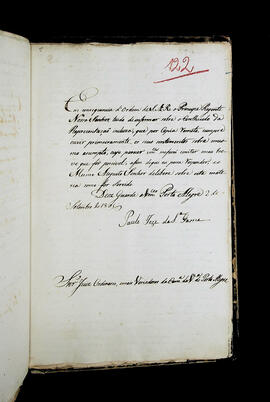 122
Em consequencia d'Ordem de S. A. R. o Principe Regente
Nosso Senhor tendo de informar sobre o Contheudo da
Reprezentação incluza, que por Copia remetto, cumpre
ouvir primeiramente os seus sobre o
mesmo assumpto, cujo parecer mais bre
ve que for possivel, afim d'que eu possa responder, e o
Mesmo Augusto Senhor delibere sobre esta materia
como for Servido
Deos Guarde a Porto Alegre 2 de
Setembro de
Paulo Jozé da S.ª Gama
Snr.s Juiz Ordinario, e mais Vereadores da Cam.ª da V.ª de Porto Alegre